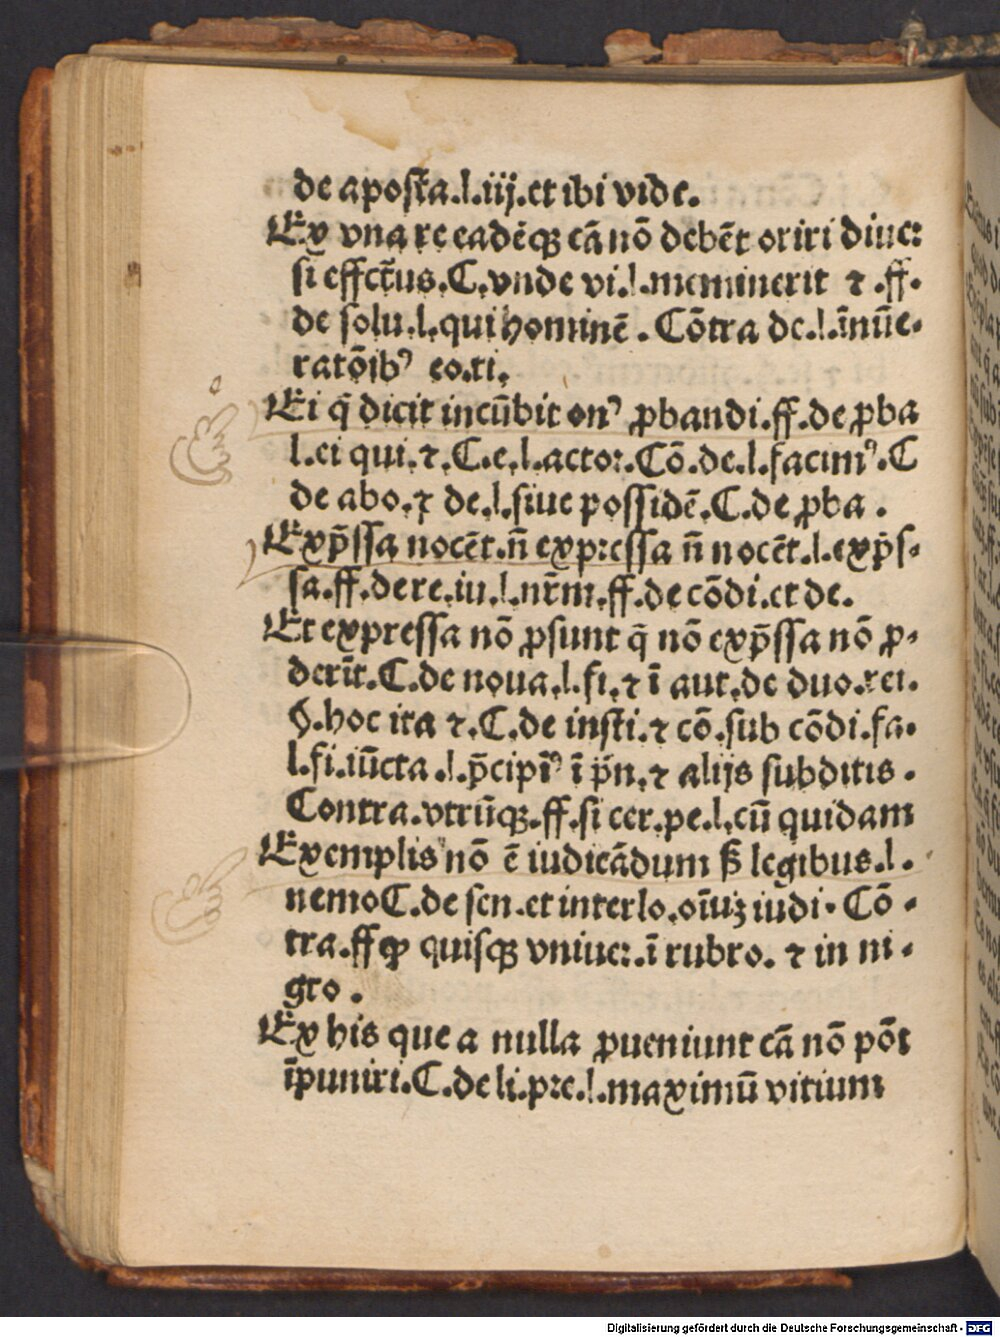 de aposta̅.l.iij.et ibi vide.
Ex vna re eadēqꝫ cā nō debēt oriri diuer
si effctūs.C.vnde vi.l.meminerit ⁊ .ff.
de solu.l.qui hominē . Cōtra de.l.īnūe-
ratōib⁹ eo.ti.
Ei q̄ dicit incūbit on⁹ ꝓbandi.ff.de ꝓba
l.ei qui.⁊.C.e.l.actor.Cō.de.l.facim⁹.C
de abo.⁊ de.l.siue possidē.C.de ꝓba .
Exp̄ssa nocēt.n̄ expressa n̄ nocēt.l.exp̄s-
sa.ff.de re.iu.l.nr̄m.ff.de cōdi.et de.
Et expressa nō ꝓsunt q̄ nō exp̄ssa nō ꝓ-
derīt.C.de noua.l.fi.⁊ ī aut.de duo.rei.
§.hoc ita ⁊.C.de insti.⁊ cō.sub cōdi.fa.
l.fi.iūcta .l.p̄cipim⁹ ī p̄n.⁊ alijs subditis .
Contra.vtrūqꝫ.ff.si cer.pe.l.cū quidam
Exemplis nō ē iudicādum ß legibus.l.
nemo C.de sen.et interlo.oīuꝫ iudi. Cō -
tra.ff ꝙ quisqꝫ vniuer.ī rubro. ⁊ in ni -
gro .
Ex his que a nulla ꝓueniunt cā nō pōt
īpuniri.C.de li.pre.l.maximū vitium
Digitalisierung gefördert durch die Deutsche Forschungsgemeinschaft - DFG